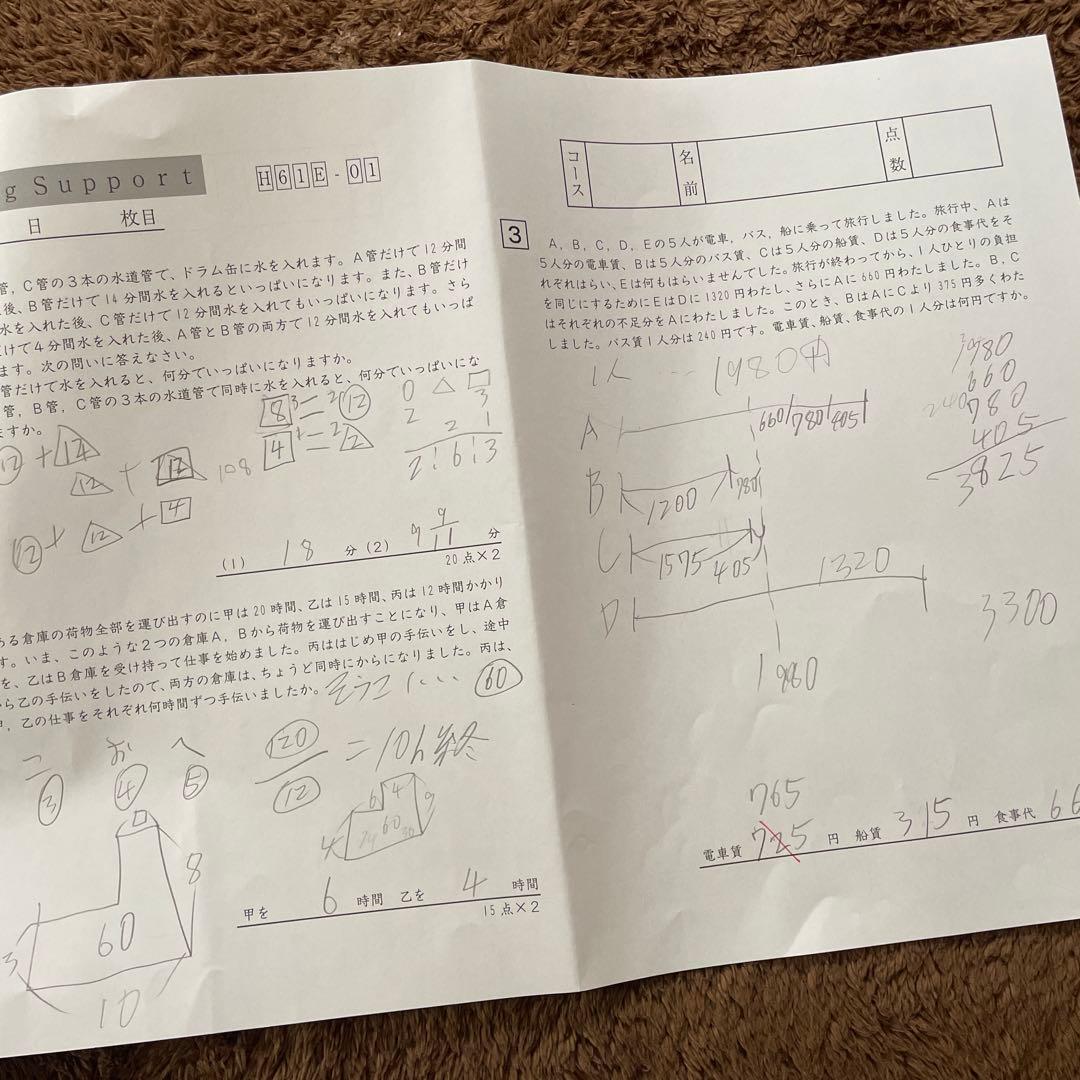 g Support
H61E-01
日 枚目
管，C管の３本の水道管で、ドラム缶に水を入れます。A管だけで12分間
後、B管だけで14分間水を入れるといっぱいになります。また、B管だけ
水を入れた後、C管だけで12分間水を入れてもいっぱいになります。さら
だけで４分間水を入れた後、A管とB管の両方で12分間水を入れてもいっぱ
ます。次の問いに答えなさい。
管だけで水を入れると、何分でいっぱいになりますか。
管，B管，C管の３本の水道管で同時に水を入れると、何分でいっぱいにな
ますか。
8 3 = 2 12
4 1 = 2 2
0 △ □
2 3
2 1
2:6:3
12 + 14
12 + 12 108
12 + 12 + 4
(1) 18 分 (2) 9 9/11 分
20点×2
ある倉庫の荷物全部を運び出すのに甲は20時間、乙は15時間、丙は12時間かかり
す。いま、このような２つの倉庫A，Bから荷物を運び出すことになり、甲はA倉
を、乙はB倉庫を受け持って仕事を始めました。丙ははじめ甲の手伝いをし、途中
から乙の手伝いをしたので、両方の倉庫は、ちょうど同時にからになりました。丙は、
甲，乙の仕事をそれぞれ何時間ずつ手伝いましたか。
そうこ 60
こ お へ
3 4 5
120
12
= 10h 終
8
60
3
10
6 4
9
60
4
甲を 6 時間 乙を 4 時間
15点×2
コース
名前
点数
3
A，B，C，D，Eの５人が電車，バス，船に乗って旅行しました。旅行中、Aは
５人分の電車賃、Bは５人分のバス賃、Cは５人分の船賃、Dは５人分の食事代をそ
れぞれはらい、Eは何もはらいませんでした。旅行が終わってから、１人ひとりの負担
を同じにするためにEはDに1320円わたし、さらにAに660円わたしました。B，C
はそれぞれの不足分をAにわたしました。このとき、BはAにCより375円多くわた
しました。バス賃１人分は240円です。電車賃、船賃、食事代の１人分は何円ですか。
1人 … 1980円
A 660 780 405
B 1200 780
C 1575 405
D 1320
1980
3980
660
240 780
405
3825
3300
765
電車賃 725 円 船賃 315 円 食事代 66